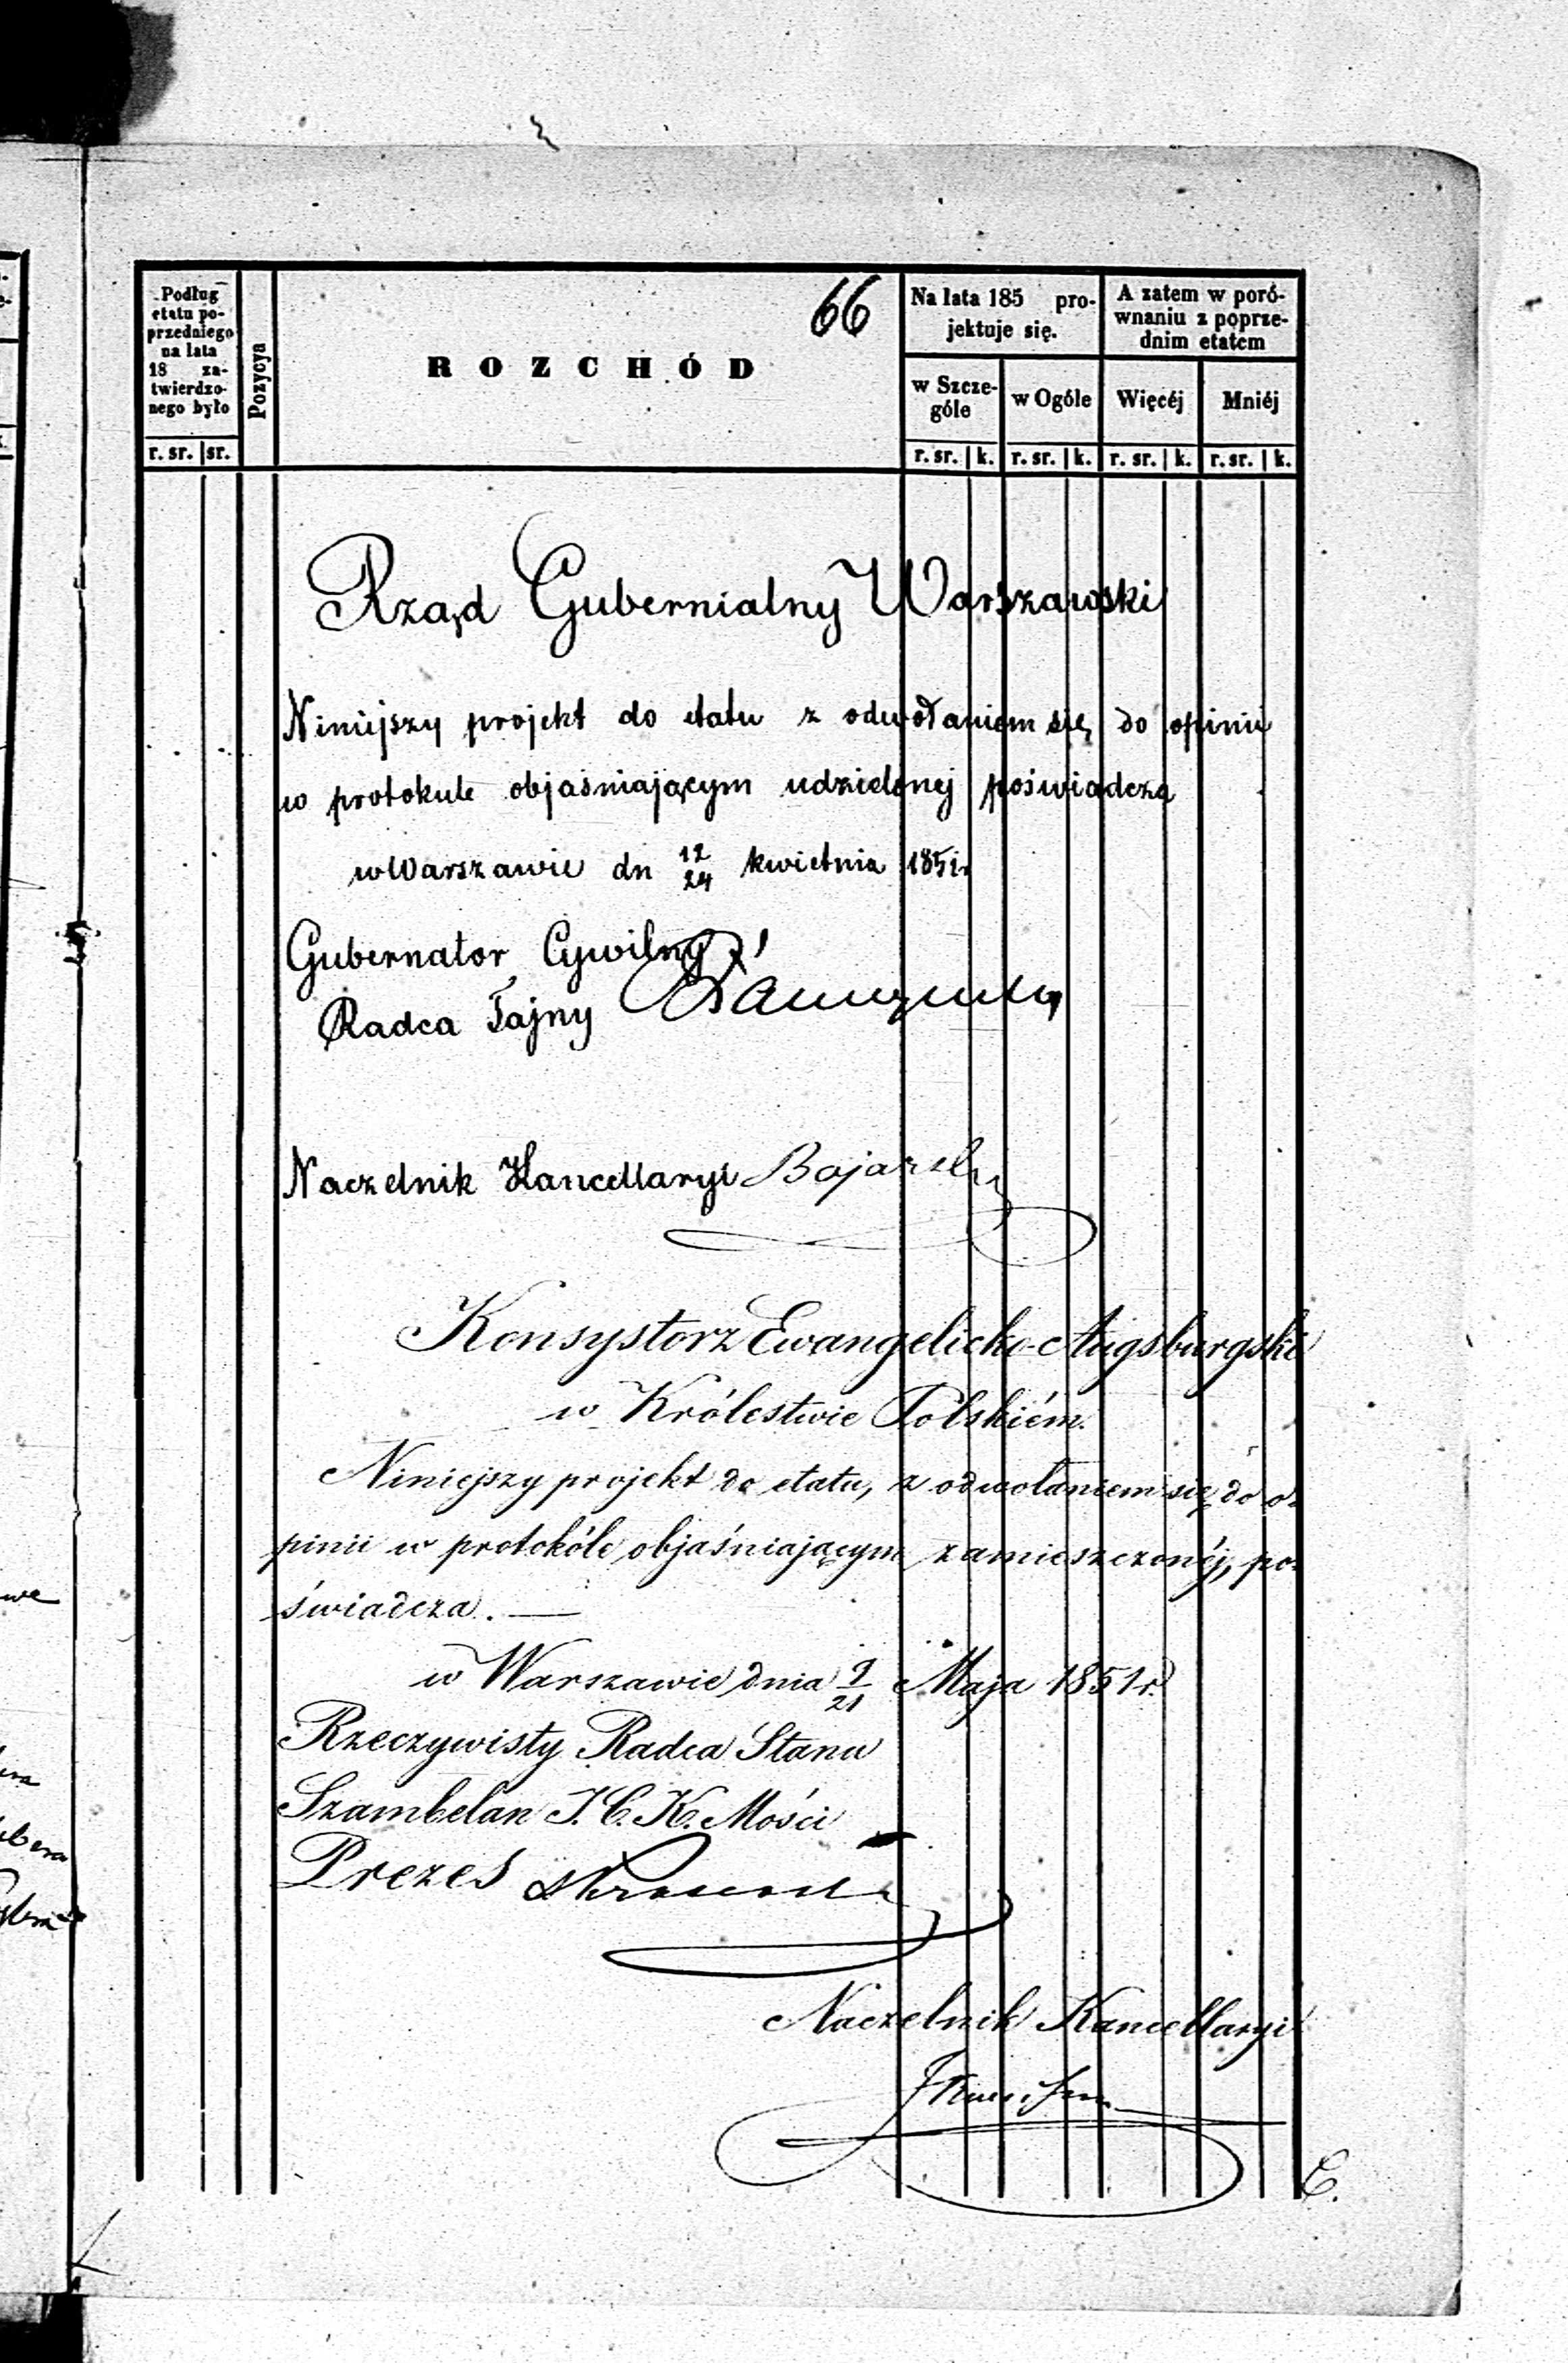 66
Podług
etatu po-
przedniego
na lata
18 za-
twierdzo-
nego było
Pozycya
ROZCHÓD
Na lata 185 pro-
jektuje się.
A zatem w poró-
wnaniu z poprze-
dnim etatem
w Szcze-
góle
w Ogóle
Więcéj
Mniéj
r. sr. sr.
r. sr. k. r. sr. k. r. sr. k. r. sr. k.
Rząd Gubernialny Warszawski
Niniejszy projekt do etatu z odwołaniem się do opinii
w protokule objaśniającym udzielonej poświadcza
w Warszawie dn 12/24 kwietnia 1851r
Gubernator Cywilny
Radca Tajny
Naczelnik Kancellaryi Bojarski
Konsystorz Ewangelicko-Augsburgski
w Królestwie Polskiém.
Niniejszy projekt do etatu, z odwołaniem się do o-
pinii w protokóle objaśniającym zamieszczonéj, po-
świadcza.—
w Warszawie dnia 9/21 Maja 1851 r.
Rzeczywisty Radca Stanu
Szambelan J. C. K. Mości
Prezes
Naczelnik Kancellaryi
C.